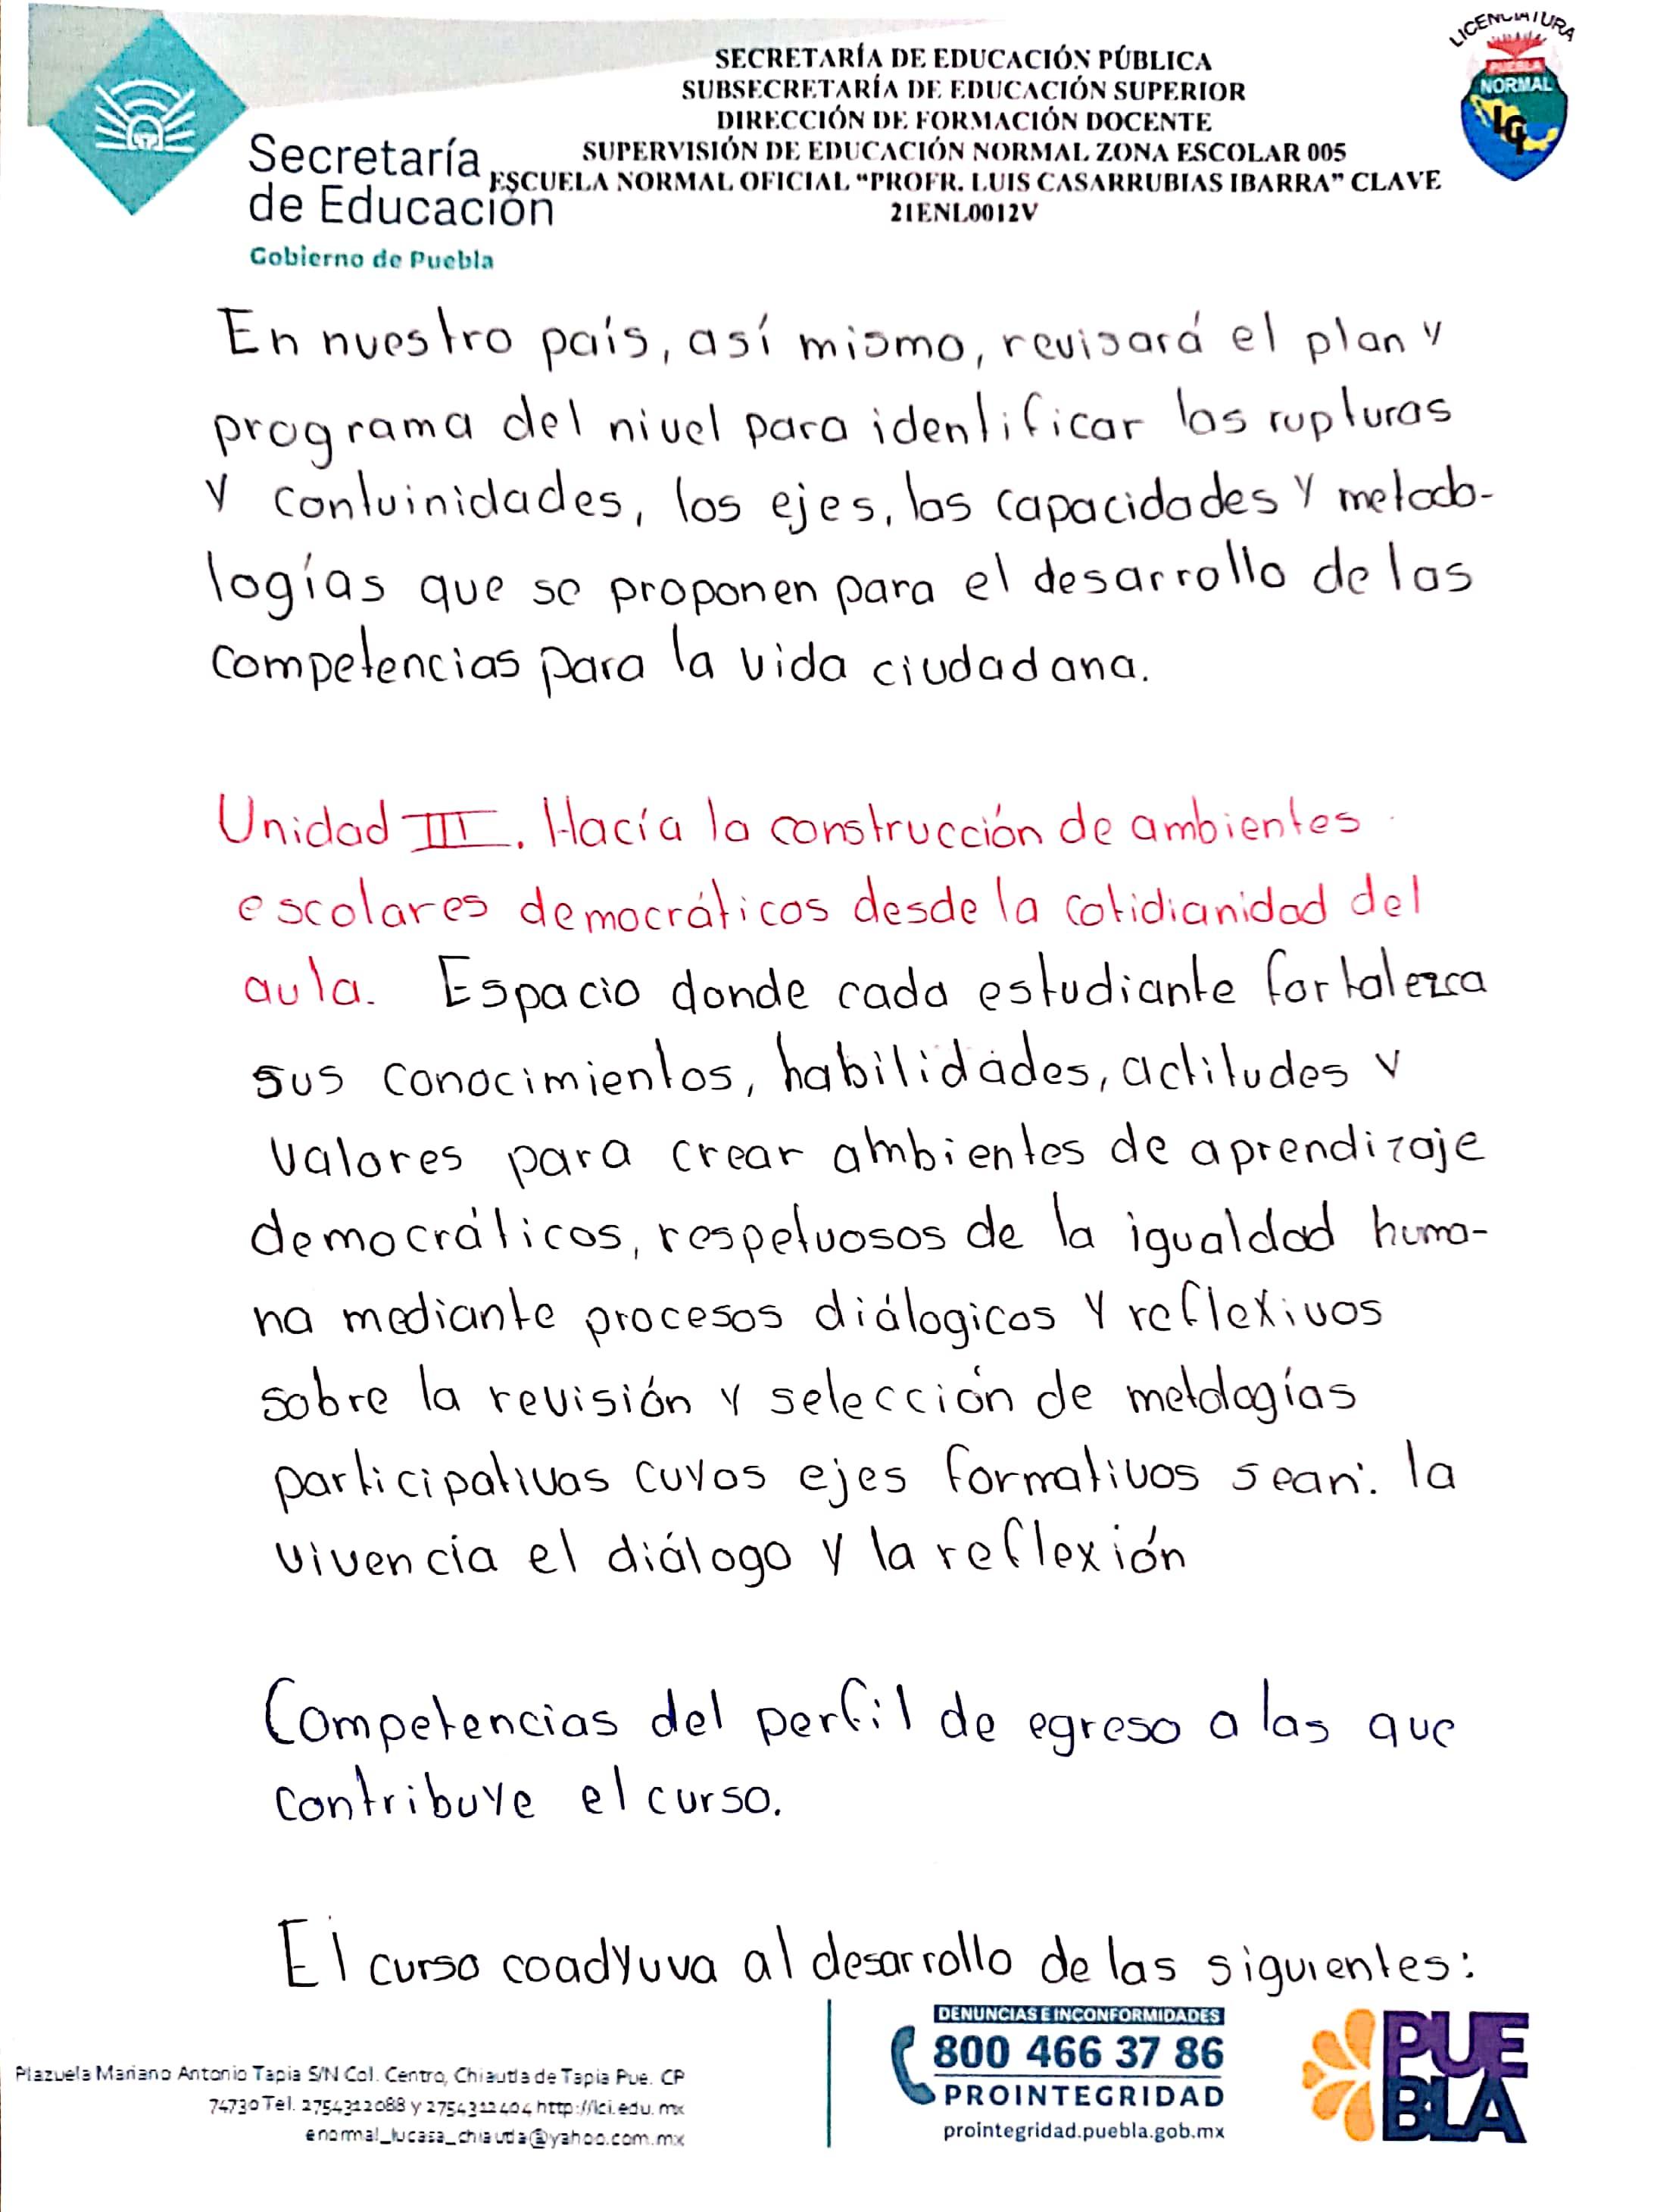 SECRETARÍA DE EDUCACIÓN PÚBLICA
SUBSECRETARÍA DE EDUCACIÓN SUPERIOR
DIRECCIÓN DE FORMACIÓN DOCENTE
SUPERVISIÓN DE EDUCACIÓN NORMAL ZONA ESCOLAR 005
ESCUELA NORMAL OFICIAL “PROFR. LUIS CASARRUBIAS IBARRA” CLAVE
21ENL0012V
Secretaría
de Educación
Gobierno de Puebla
LICENCIATURA
PUEBLA
NORMAL
LCI
En nuestro país, así mismo, revisará el plan y
programa del nivel para identificar las rupturas
y contuinidades, los ejes, las capacidades y metodo-
logías que se proponen para el desarrollo de las
competencias para la vida ciudadana.
Unidad III. Hacía la construcción de ambientes
escolares democráticos desde la cotidianidad del
aula. Espacio donde cada estudiante fortalezca
sus conocimientos, habilidades, actitudes y
valores para crear ambientes de aprendizaje
democráticos, respetuosos de la igualdad huma-
na mediante procesos diálogicos y reflexivos
sobre la revisión y selección de metdlogías
participativas cuyos ejes formativos sean: la
vivencia el diálogo y la reflexión
Competencias del perfil de egreso a las que
contribuye el curso.
El curso coadyuva al desarrollo de las siguientes:
Plazuela Mariano Antonio Tapia S/N Col. Centro, Chiautla de Tapia Pue. CP
74730 Tel. 2754312088 y 2754312404 http://lci.edu.mx
enormal_lucasa_chiautla@yahoo.com.mx
DENUNCIAS E INCONFORMIDADES
800 466 37 86
PROINTEGRIDAD
prointegridad.puebla.gob.mx
PUE
BLA